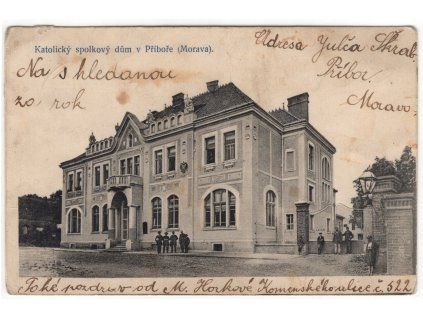 Katolický spolkový dům v Příboře (Morava).
Na shledanou
za rok
Adresa Julča Škrab.
Příbor
Morava.
Také pozdrav od M. Horkové Komenského ulice č. 522